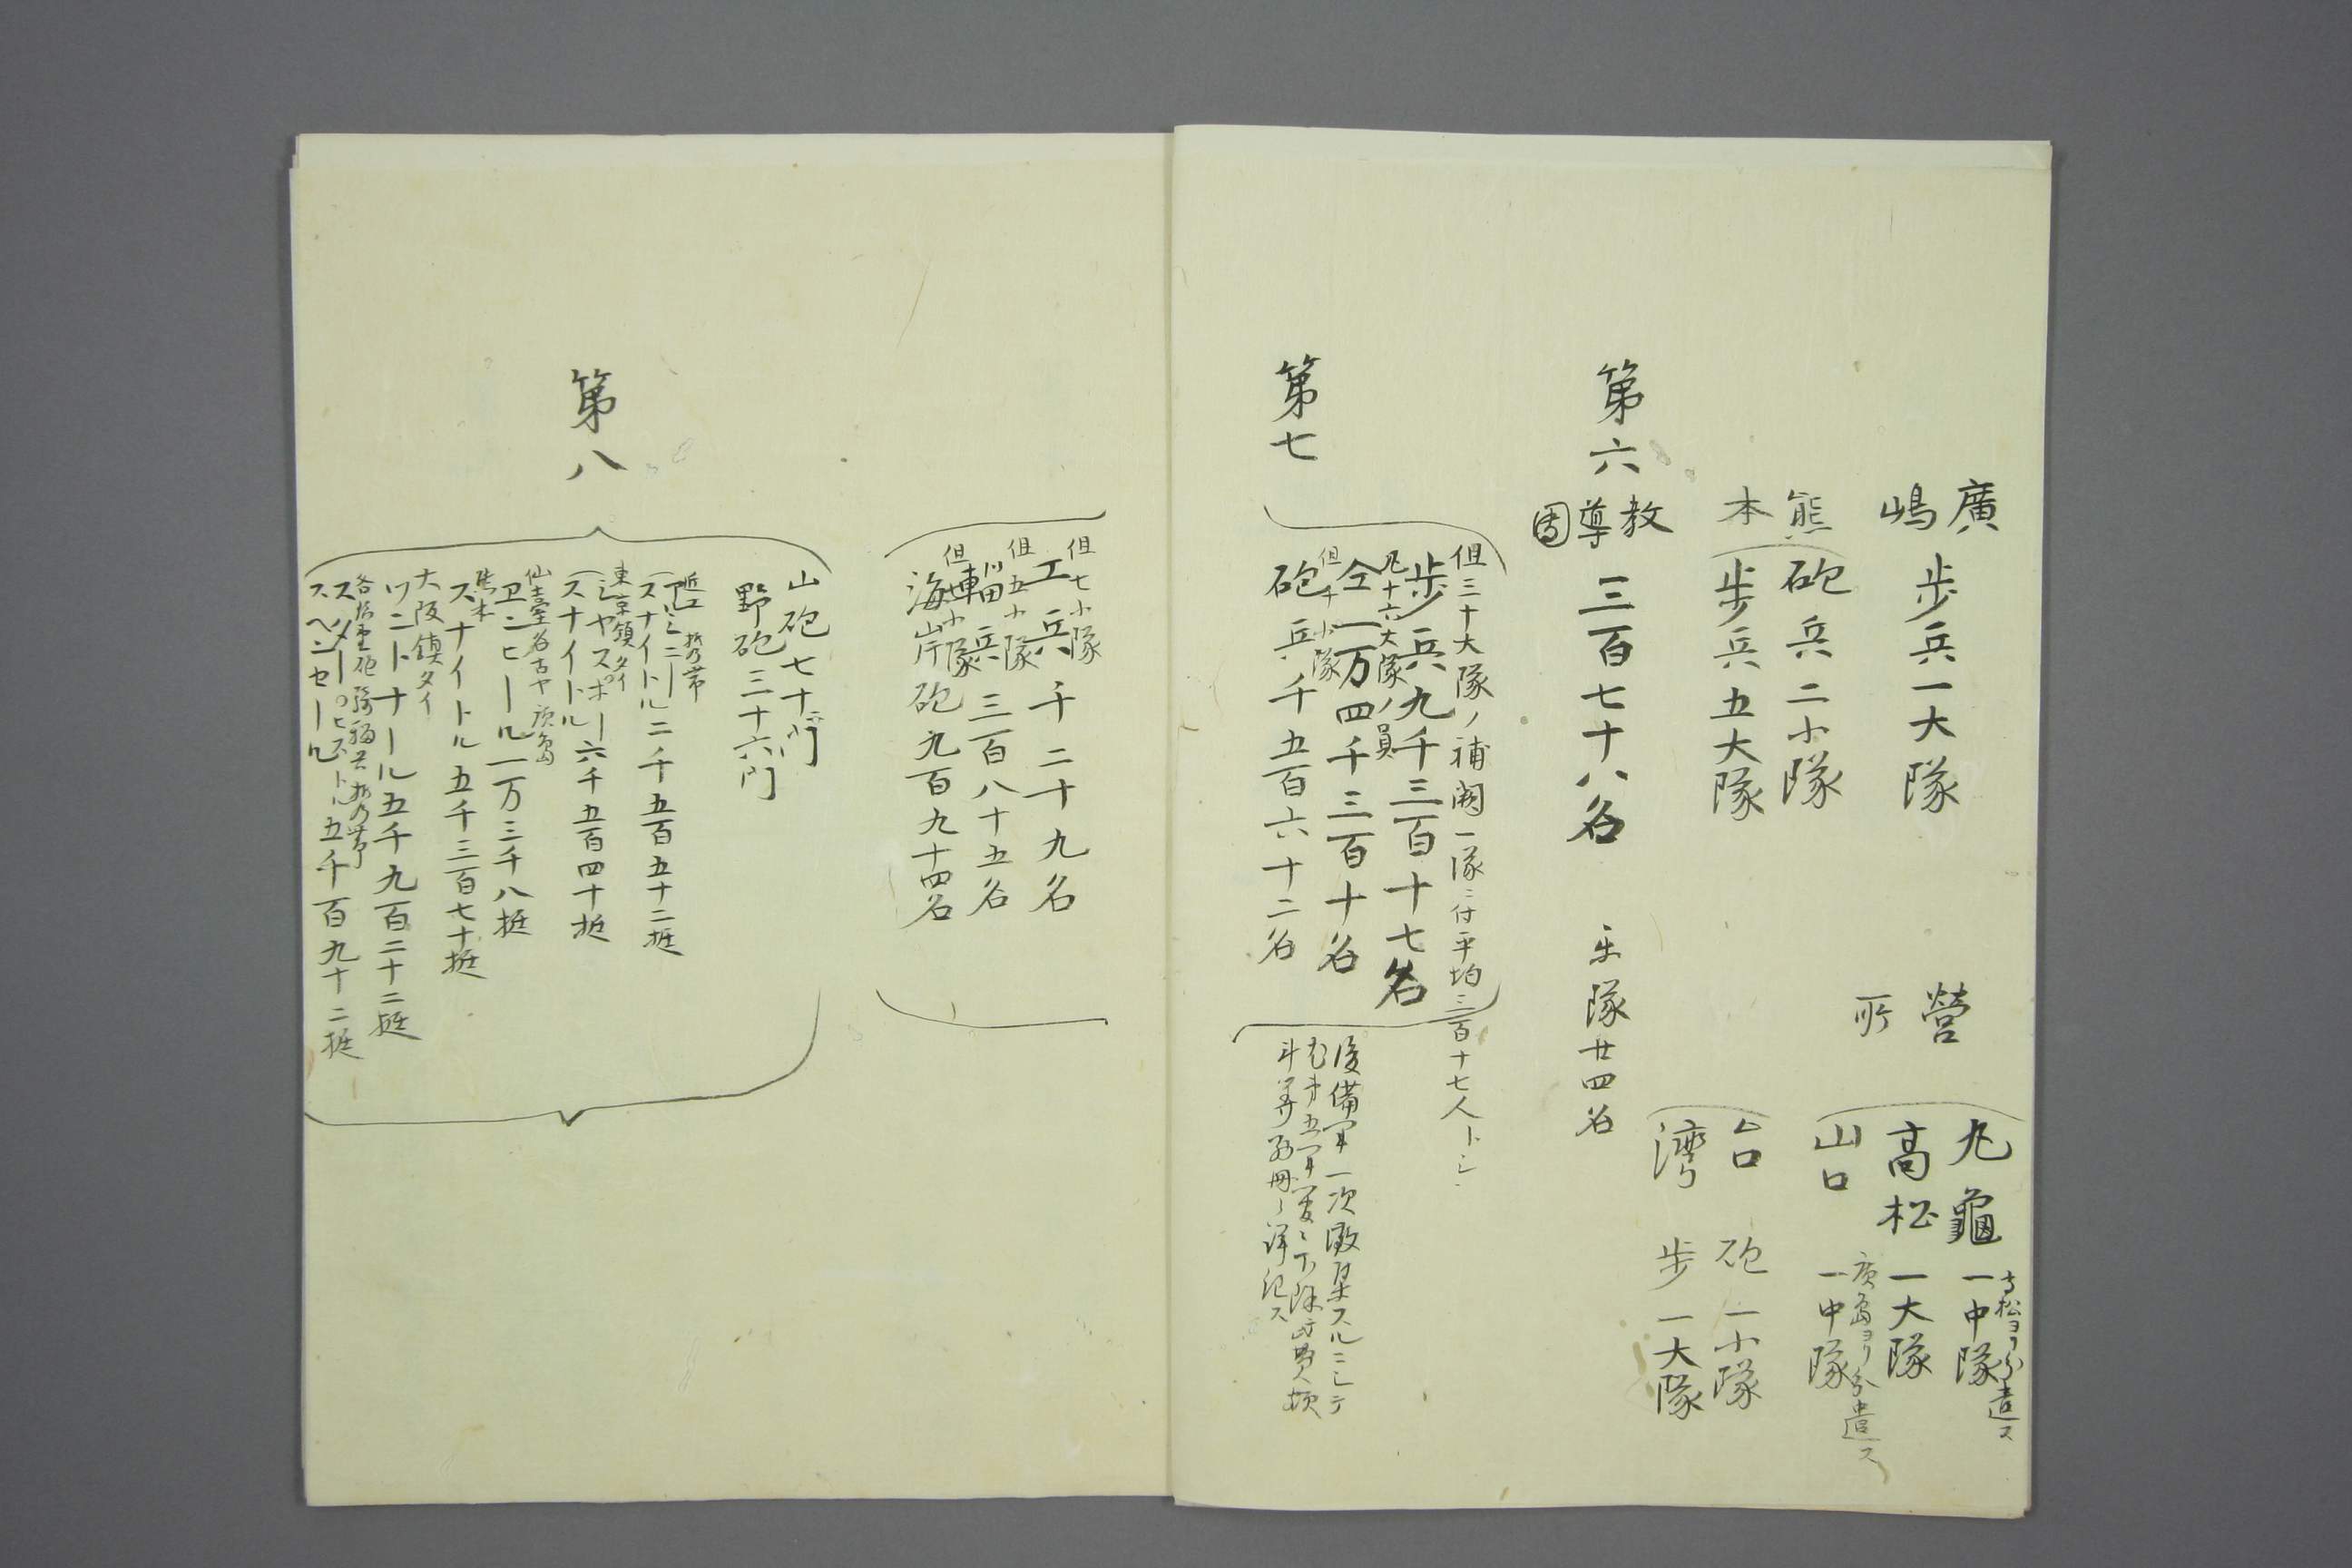 廣嶋 歩兵一大隊
營所
丸龜 一中隊 高松ヨリ分遣ス
高松 一大隊
山口 一中隊 廣島ヨリ分遣ス
熊本
砲兵二小隊
歩兵五大隊
台湾
砲一小隊
歩一大隊
第六
教導団 三百七十八名 樂隊廿四名
第七
但三十大隊ノ補闕一隊ニ付平均三百十七人トシ
歩兵九千三百十七名
凡十六大隊ノ員
仝一万四千三百十名
但十小隊
砲兵千五百六十二名
後備軍一次徴集スルニシテ
斗算別冊ニ詳記ス
但七小隊
工兵千二十九名
但五小隊
輜兵三百八十五名
但 小隊
海岸砲九百九十四名
第八
山砲七十二門
野砲三十六門
スナイトル二千五百五十二挺
東京鎮タイ
シヤスポー
スナイトル六千五百四十挺
仙臺名古ヤ廣島
ヱンヒール一万三千八挺
熊本
スナイトル五千三百七十挺
大阪鎮タイ
ツンナール五千九百二十二挺
スヘンセール五千百九十二挺